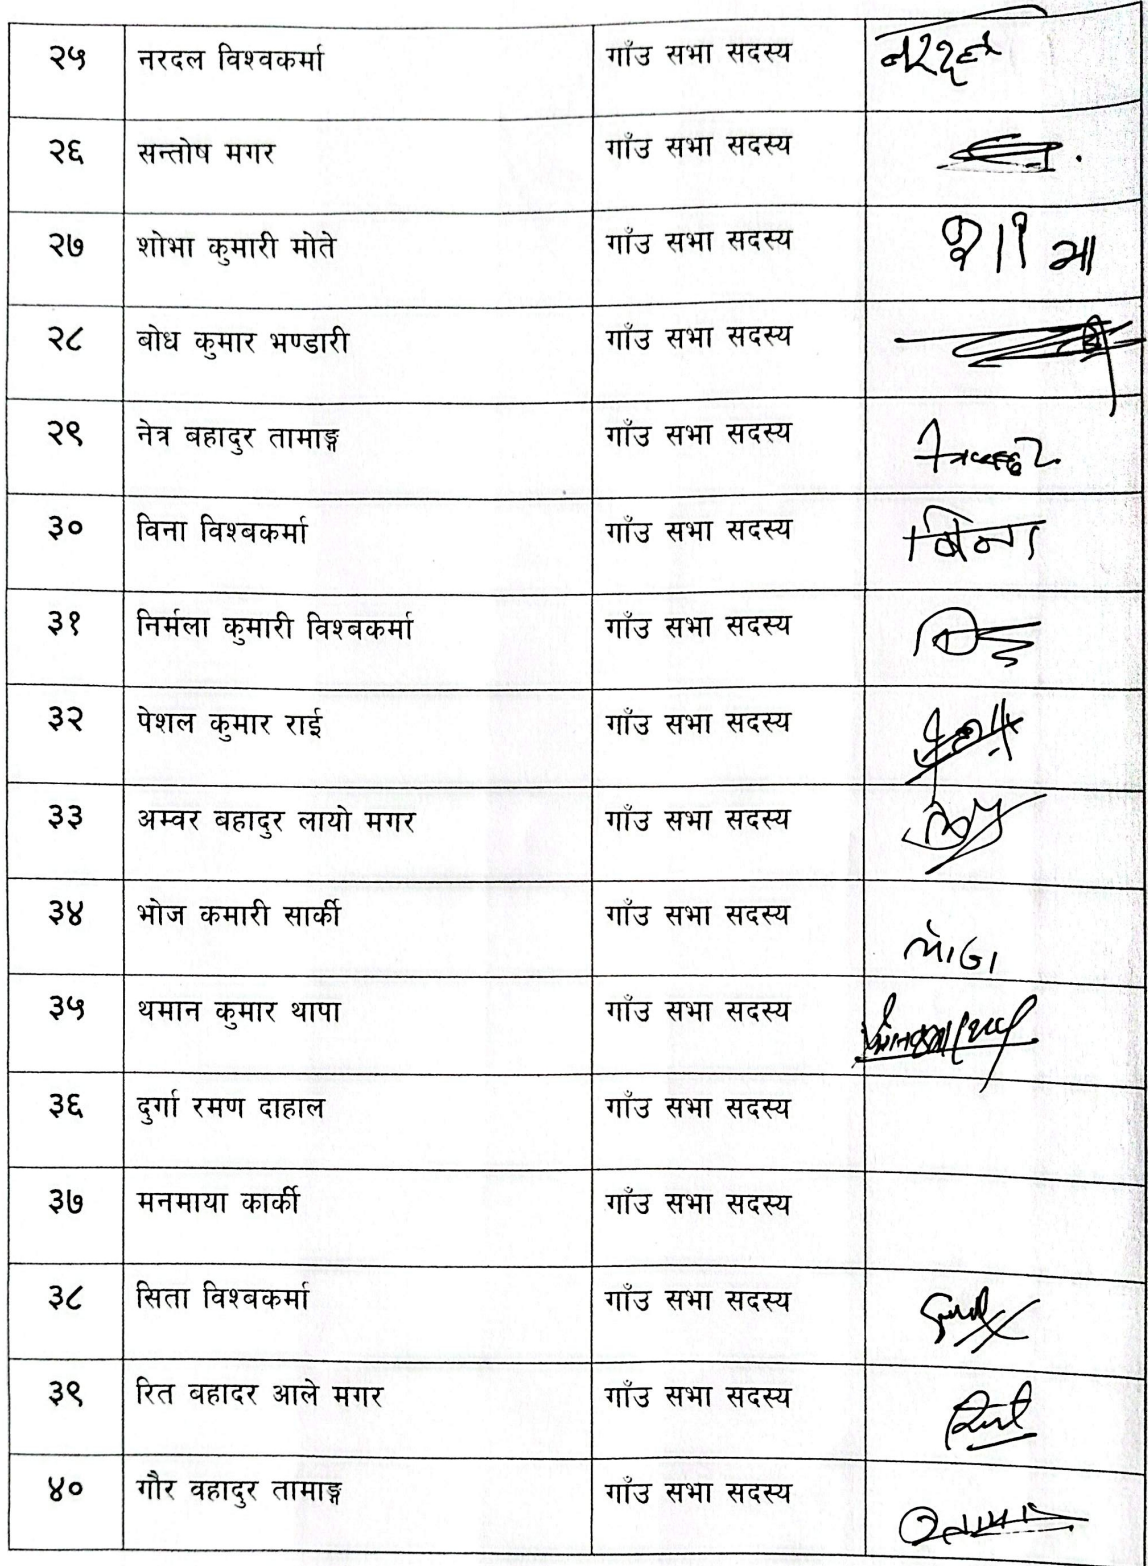 २५ नरदल विश्वकर्मा गाँउ सभा सदस्य नरदल
२६ सन्तोष मगर गाँउ सभा सदस्य
२७ शोभा कुमारी मोते गाँउ सभा सदस्य
२८ बोध कुमार भण्डारी गाँउ सभा सदस्य
२९ नेत्र बहादुर तामाङ्ग गाँउ सभा सदस्य
३० विना विश्बकर्मा गाँउ सभा सदस्य बिना
३१ निर्मला कुमारी विश्वकर्मा गाँउ सभा सदस्य
३२ पेशल कुमार राई गाँउ सभा सदस्य
३३ अम्वर बहादुर लायो मगर गाँउ सभा सदस्य
३४ भोज कमारी सार्की गाँउ सभा सदस्य
३५ थमान कुमार थापा गाँउ सभा सदस्य
३६ दुर्गा रमण दाहाल गाँउ सभा सदस्य
३७ मनमाया कार्की गाँउ सभा सदस्य
३८ सिता विश्बकर्मा गाँउ सभा सदस्य
३९ रित वहादर आले मगर गाँउ सभा सदस्य
४० गौर वहादुर तामाङ्ग गाँउ सभा सदस्य